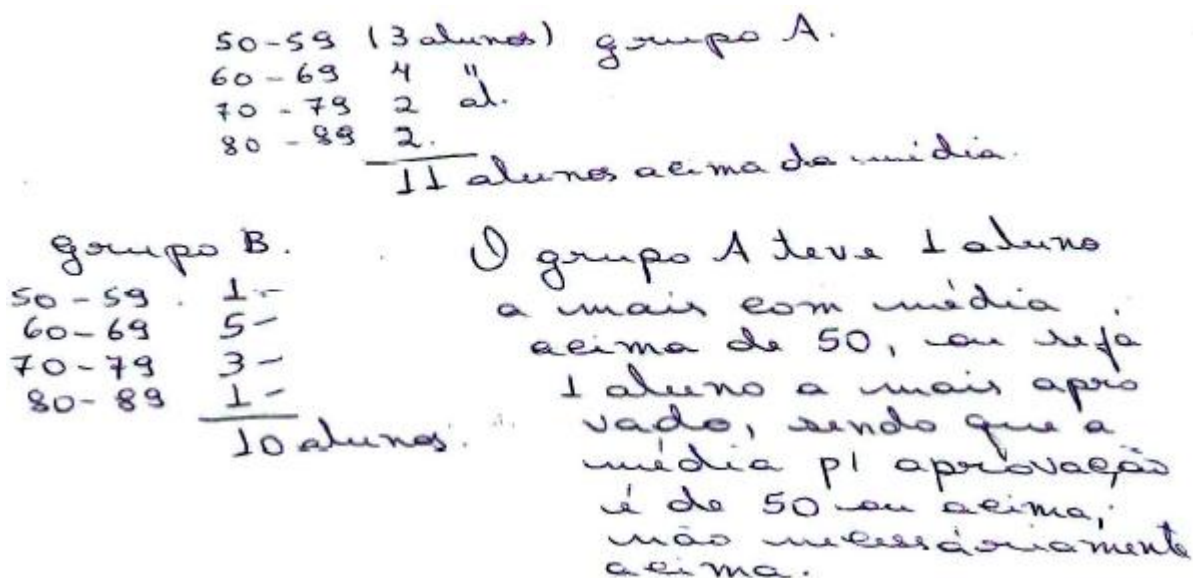 50-59 (3 alunos) grupo A.
60-69 4 "
70-79 2 al.
80-89 2.
11 alunos acima da média.
grupo B.
50-59. 1.-
60-69 5-
70-79 3-
80-89 1-
10 alunos.
O grupo A teve 1 aluno
a mais com média
acima de 50, ou seja
1 aluno a mais apro
vado, sendo que a
média p/ aprovação
é de 50 ou acima,
não necessáriamente
acima.